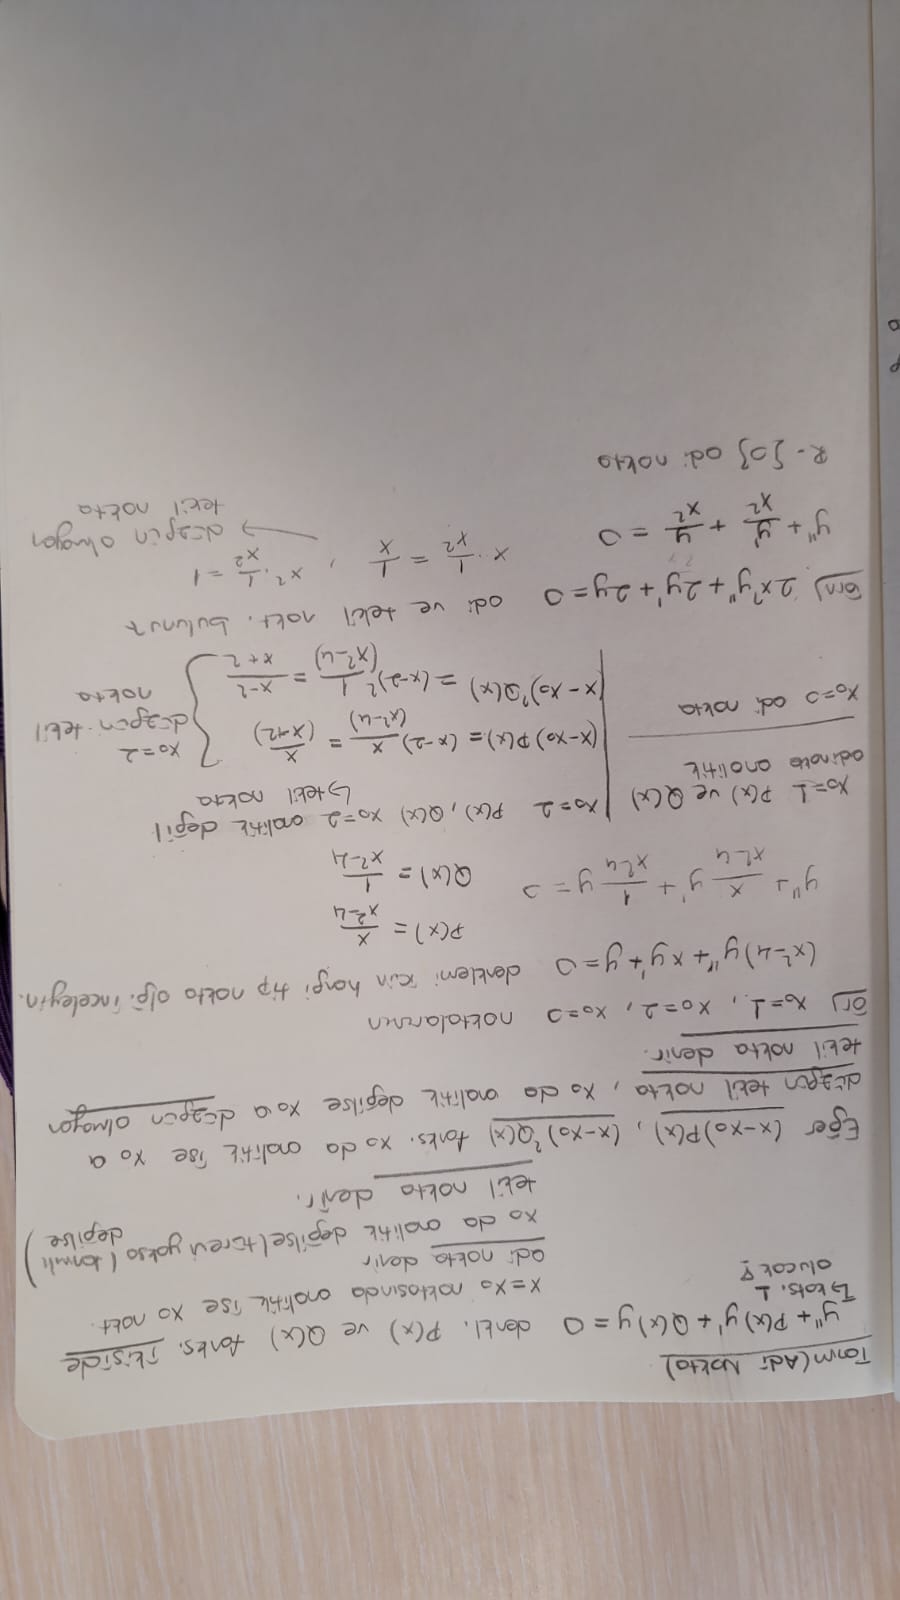 Tanım (Adi Nokta)
y'' + P(x) y' + Q(x) y = 0 denkl. P(x) ve Q(x) fonks. ikiside
↳ kats. 1 olucak ?
x = x₀ noktasında analitik ise x₀ nokt.
adi nokta denir
x₀ da analitik değilse (türevi yoksa (tanımlı değilse)
tekil nokta denir.
Eğer (x-x₀)P(x), (x-x₀)²Q(x) fonks. x₀ da analitik ise x₀ a
düzgün tekil nokta, x₀ da analitik değilse x₀ a düzgün olmayan
tekil nokta denir.
Ör) x₀=1, x₀=2, x₀=0 noktalarının
(x²-4)y'' + xy' + y = 0 denklemi için hangi tip nokta olğ. inceleyin.
P(x) = x/(x²-4)
y'' + x/(x²-4) y' + 1/(x²-4) y = 0
Q(x) = 1/(x²-4)
x₀=1 P(x) ve Q(x)
adi nokta analitik
x₀=0 adi nokta
x₀=2 P(x), Q(x) x₀=2 analitik değil
↳ tekil nokta
(x-x₀) P(x) = (x-2) x/(x²-4) = x/(x+2)
(x-x₀)²Q(x) = (x-2)² 1/(x²-4) = (x-2)/(x+2)
x₀=2
düzgün tekil
nokta
Örn) 2x²y'' + 2y' + 2y = 0 adi ve tekil nokt. bulunuz
y'' + y'/x² + y/x² = 0
x · 1/x² = 1/x , x² · 1/x² = 1
→ düzgün olmayan
tekil nokta
R - {0} adi nokta